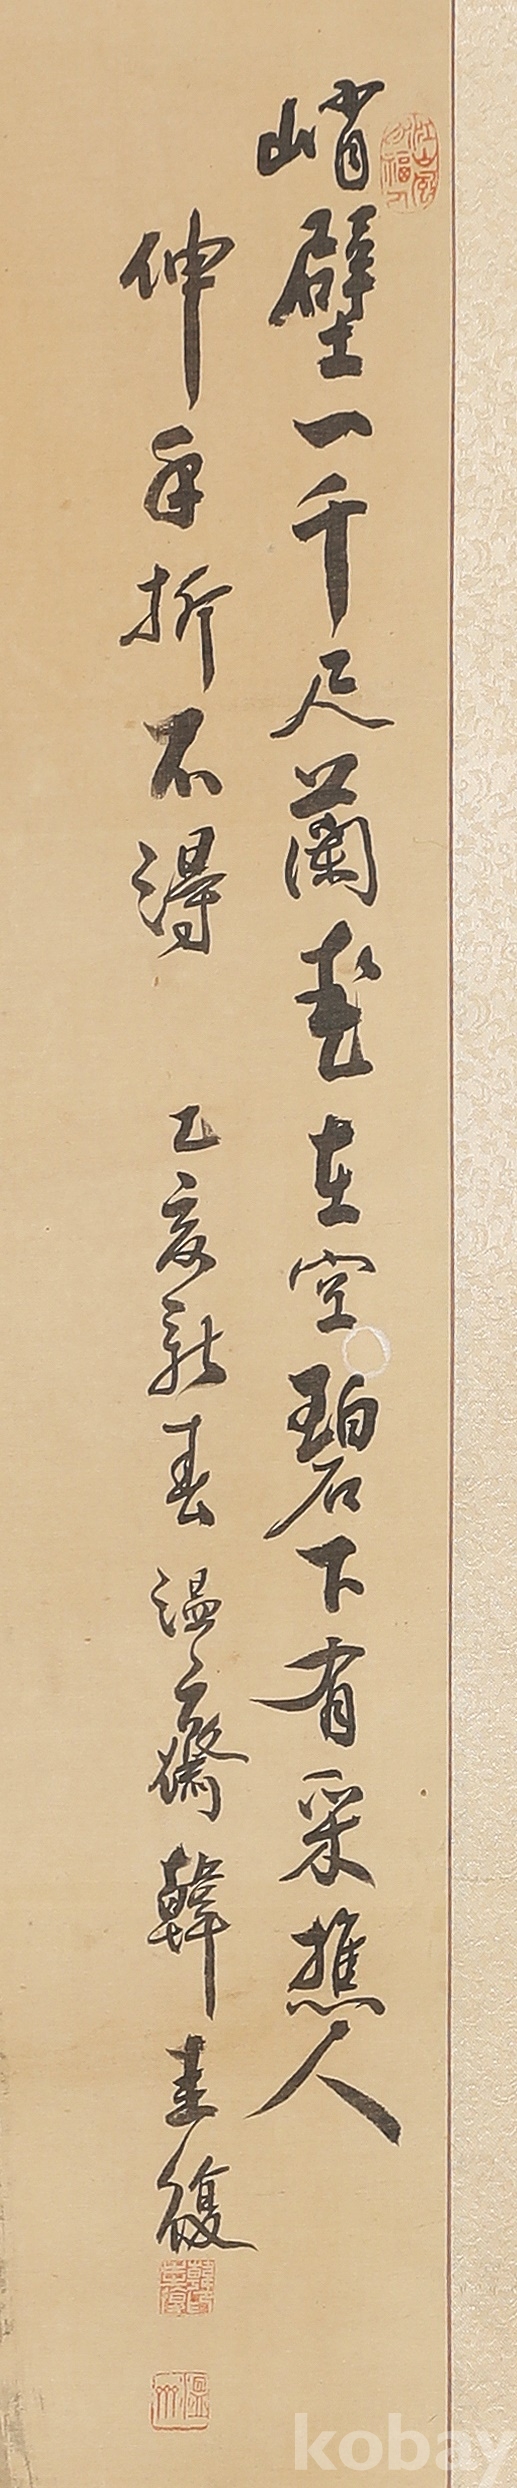 峭壁一千尺蘭花在空碧下有采樵人
伸手折不得 乙亥新春 溫齋韓圭復
kobay